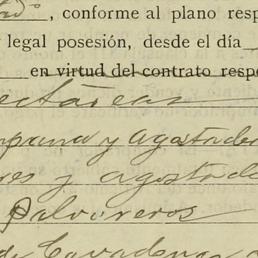 , conforme al plano resp
legal posesión, desde el día
en virtud del contrato respe
ectáreas
y agostade
res y agostad
Salvoreros
de Cavadenas